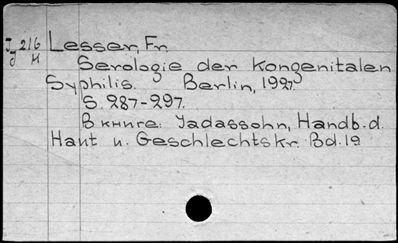 Jg 216 Lesser, Fr.
H
Serologie der Kongenitalen
Syphilis. Berlin, 1927.
S. 287-297.
В книге: Jadassohn, Handb. d.
Haut u. Geschlechtskr. Bd. 19